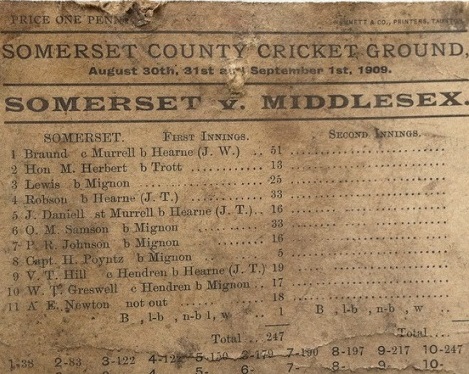 PRICE ONE PENN
NNETT & CO., PRINTERS,
SOMERSET COUNTY CRICKET GROUND,
August 30th, 31st and September 1st, 1909.
SOMERSET v. MIDDLESEX.
SOMERSET. FIRST INNINGS. SECOND INNINGS.
1 Braund c Murrell b Hearne (J. W.) .. 51
2 Hon M. Herbert b Trott 13
3 Lewis b Mignon 25
4 Robson b Hearne (J. T.) 33
5 J. Daniell st Murrell b Hearne (J. T.) .. 16
6 O. M. Samson b Mignon 33
7 P. R. Johnson b Mignon 16
8 Capt. H. Poyntz b Mignon 5
9 V. T. Hill c Hendren b Hearne (J. T.) 19
10 W. T. Greswell c Hendren b Mignon 17
11 A E. Newton not out 18
B , l-b , n-b 1, w 1 B , l-b , n-b , w
Total .. 247 Total....
1-38 2-83 3-122 4-12 5-150 6-179 7-190 8-197 9-217 10-247
4- 5- 6- 7- 8- 9- 10-